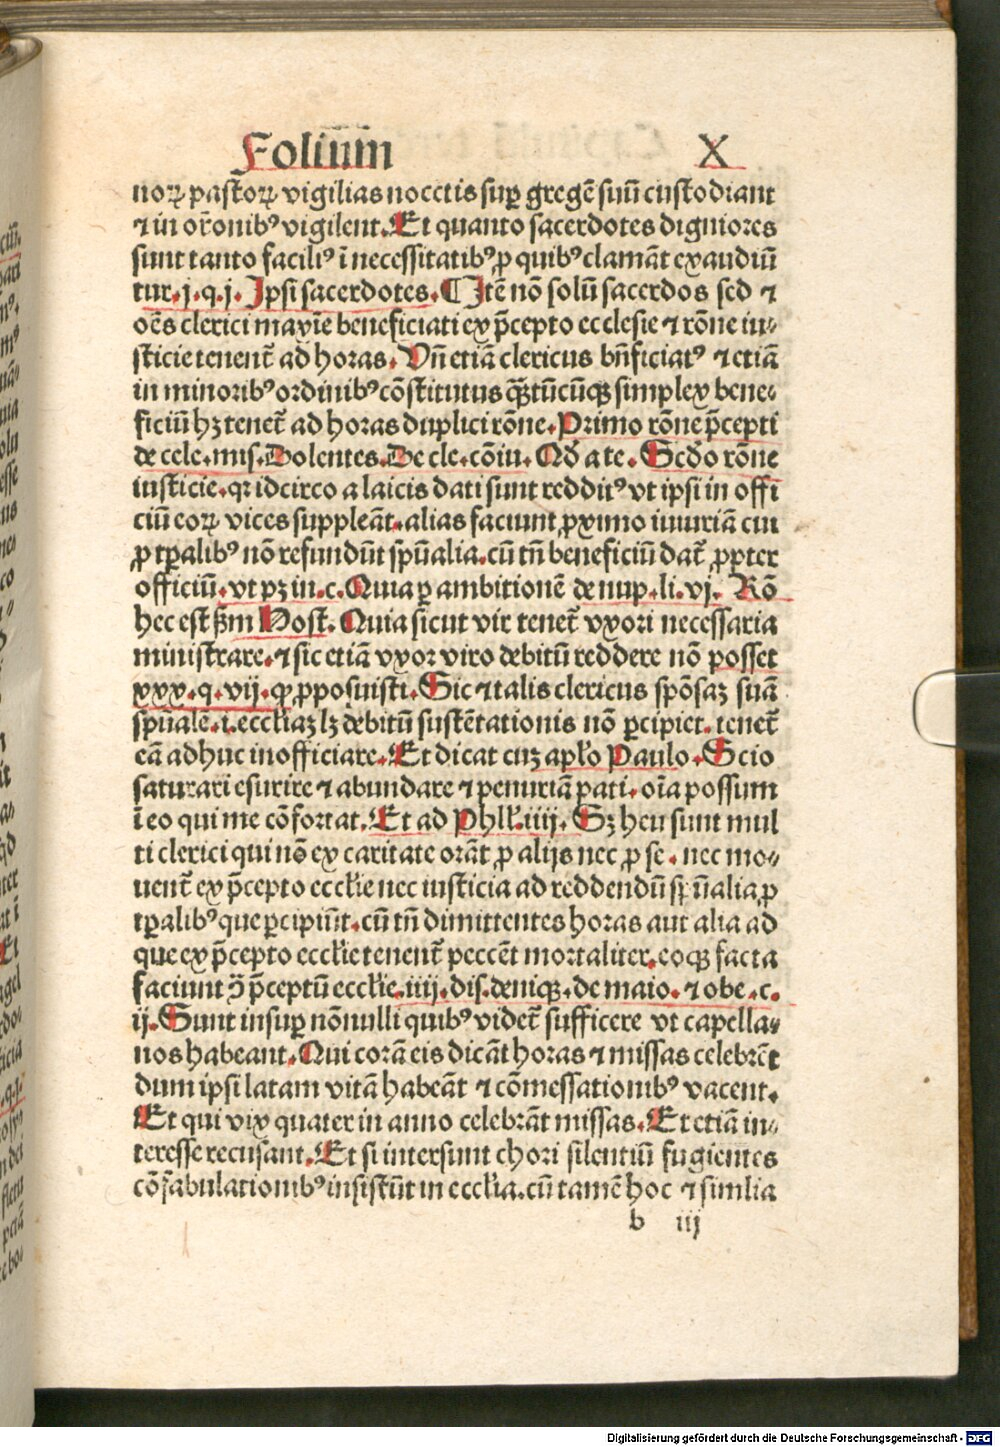 Folium̄ X
noꝝ pastoꝝ vigilias nocctis suꝑ gregē suū custodiant
⁊ in or̄onibꝰ vigilent. Et quanto sacerdotes digniores
sunt tanto faciliꝰ ī necessitatibꝰ ꝓ quibꝰ clamāt exaudiū
tur. j. q. j. Ipsi sacerdotes. ¶ Itē nō solū sacerdos sed ⁊
oēs clerici maxīe beneficiati ex p̄cepto ecclesie ⁊ rōne iu⸗
sticie tenent̄ ad horas. Vn̄ etiā clericus bn̄ficiatꝰ ⁊ etiā
in minoribꝰ ordinibꝰ cōstitutus qȝtūcūqȝ simplex bene⸗
ficiū hȝ tenet̄ ad horas duplici rōne. Primo rōne p̄cepti
de cele. mis. Dolentes. De cle. cōiu. Qd̄ a te. Scd̄o rōne
iusticie. qꝛ idcirco a laicis dati sunt redditꝰ vt ipsi in offi
ciū eoꝝ vices suppleāt. alias faciunt ꝓximo iniuriā cui
ꝓ tꝑalibꝰ nō refundūt spūalia. cū tn̄ beneficiū dat̄ ꝓpter
officiū. vt pȝ in. c. Quia ꝑ ambitionē de nup. li. vj. Rō
hec est ẜm Host. Quia sicut vir tenet̄ vxori necessaria
ministrare. ⁊ sic etiā vxor viro debitū reddere nō posset
xxx. q. vij. ꝙ ꝓposuisti. Sic ⁊ talis clericus spōsaȝ suā
spūalē. i. eccl̄iaȝ lȝ debitū sustētationis nō ꝑcipiet. tenet̄
eā adhuc inofficiare. Et dicat cuȝ apl̄o Paulo. Scio
saturari esurire ⁊ abundare ⁊ penuriā pati. oīa possum
ī eo qui me cōfortat. Et ad Phll̄. iiij. Sȝ heu sunt mul
ti clerici qui nō ex caritate orāt ꝓ alijs nec ꝓ se. nec mo⸗
uent̄ ex p̄cepto eccl̄ie nec iusticia ad reddendū spūalia ꝓ
tꝑalibꝰ que ꝑcipiūt. cū tn̄ dimittentes horas aut alia ad
que ex p̄cepto eccl̄ie tenent̄ peccēt mortaliter. eoqȝ facta
faciunt ꝯ̄ p̄ceptū eccl̄ie. iiij. dis. deniqȝ. de maio. ⁊ obe. c.
ij. Sunt insuꝑ nōnulli quibꝰ videt̄ sufficere vt capella⸗
nos habeant. Qui corā eis dicāt horas ⁊ missas celebrēt
dum ipsi latam vitā habeāt ⁊ cōmessationibꝰ vacent.
Et qui vix quater in anno celebrāt missas. Et etiā in⸗
teresse recusant. Et si intersunt chori silentiū fugientes
cōfabulationibꝰ insistūt in eccl̄ia. cū tamē hoc ⁊ similia
b iij
Digitalisierung gefördert durch die Deutsche Forschungsgemeinschaft - DFG